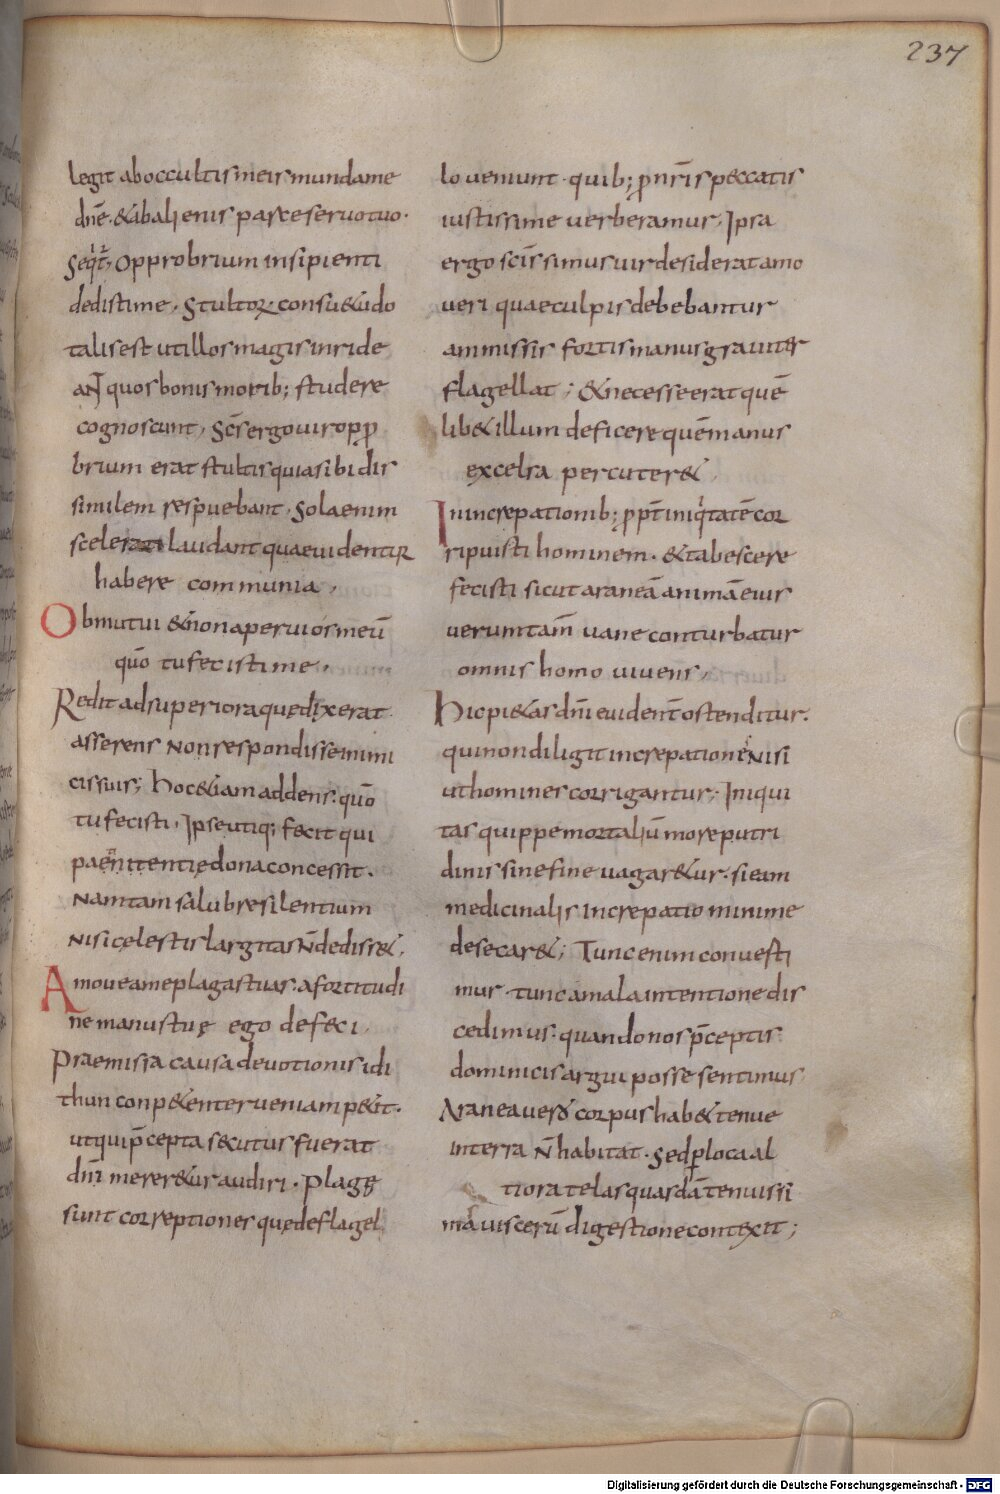 237
legit aboccultis meis mundame
dn̄e · & ab alienis parce servo tuo ·
Seq̄t̄, Opprobrium insipienti
dedisti me · Stultoꝝ consu&udo
talis est ut illos magis inride
aN̄ quos bonis morib; studere
cognoscunt, Sc̄s ergo vir opp̱
brium erat stultis quia sibi dis
similem respuebant · Sola enim
scelera laudant quae videntur
habere communia,
Obmutui & non aperui os meū
qūo tu fecisti me,
Redit ad superiora quę dixerat
asserens non respondisse inimi
cis suis; hoc &iam addens · quō
tu fecisti, Ipse utiq; fecit qui
paenitentię dona concessit ·
Nam tam salubre silentium
nisi cęlestis largitas n̄ dediss&,
Amove a me plagas tuas · a fortitudi
ne manus tuę ego defeci,
Praemissa causa devotionis idi
thun conp&enter veniam p&it ·
ut qui p̄cepta secutus fuerat
dn̄i merer&ur audiri · Plagę
sunt correptiones quę de flagel
lo veniunt · quib; ꝓ nr̄is peccatis
iustissime verberamur, Ipsa
ergo sc̄issimus vir desiderat amo
veri quae culpis debebantur
ammissis fortis manus graviter
flagellat; & necesse erat quē
lib& illum deficere quē manus
excelsa percuter&,
In increpationib; ꝓpt̄ iniq̇tatē cor
ripuisti hominem · & tabescere
fecisti sicut araneā animā eius
verumtam̄ vane conturbatur
omnis homo vivens,
Hic pi&as dn̄i evident̄ ostenditur ·
qui non diligit increpationē nisi
ut homines corrigantur; Iniqui
tas quippe mortaliū more putri
dinis sine fine vagar&ur · si eam
medicinalis increpatio minime
desecar&; Tunc enim convesti
mur · tunc a mala intentione dis
cedimus · quando nos p̄ceptis
dominicis argui posse sentimus
Aranea vero corpus hab& tenue
in terra n̄ habitat · sed ꝑ loca al
tiora telas quasdā tenuissi
mā viscerū digestione contexit;
Digitalisierung gefördert durch die Deutsche Forschungsgemeinschaft - DFG